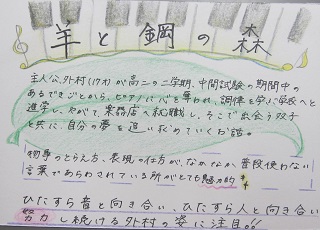 羊と鋼の森
主人公、外村(17才)が高二の二学期、中間試験の期間中の
あるできごとから、ピアノに心を奪われ、調律を学ぶ学校へと
進学し、やがて、楽器店へ就職し、そこで出会う双子
と共に、自分の夢を追い求めていくお話。
物事のとらえ方、表現の仕方が、なかなか普段使わない
言葉であらわされている所がとても魅力的
ひたすら音と向き合い、ひたすら人と向き合い
努力し続ける外村の姿に注目!!